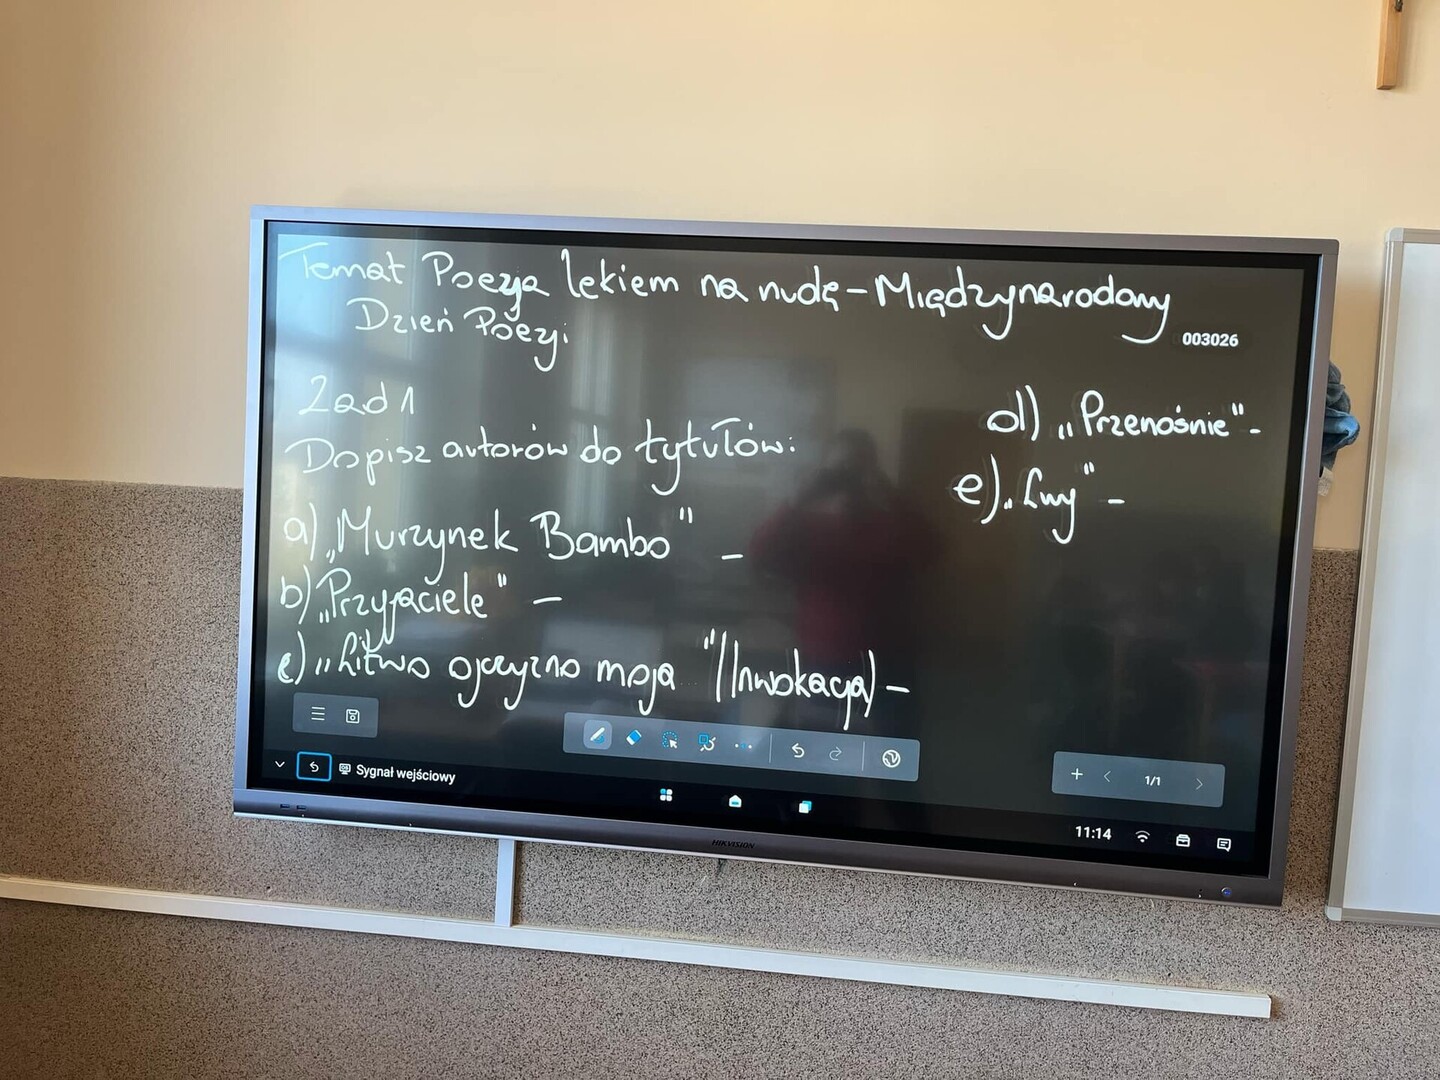 Temat Poezja lekiem na nudę – Międzynarodowy
Dzień Poezji
003026
Zad 1
Dopisz autorów do tytułów:
a) „Murzynek Bambo" –
b) „Przyjaciele" –
c) „Litwo ojczyzno moja" (Inwokacja) –
d) „Przenośnie" -
e) „Lwy" –
Sygnał wejściowy
1/1
11:14
HIKVISION